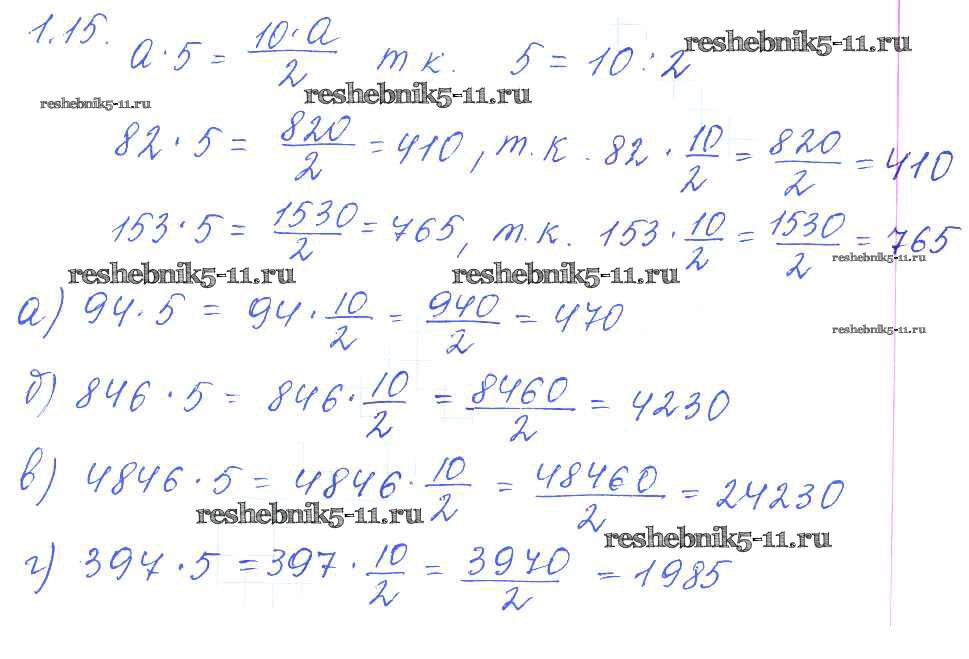 1.15.
a·5 = 10·a/2 т к. 5 = 10:2
reshebnik5-11.ru
reshebnik5-11.ru
reshebnik5-11.ru
82·5 = 820/2 = 410, т.к. 82·10/2 = 820/2 = 410
153·5 = 1530/2 = 765, т.к. 153·10/2 = 1530/2 = 765
reshebnik5-11.ru
reshebnik5-11.ru
reshebnik5-11.ru
а) 94·5 = 94·10/2 = 940/2 = 470
reshebnik5-11.ru
б) 846·5 = 846·10/2 = 8460/2 = 4230
в) 4846·5 = 4846·10/2 = 48460/2 = 24230
reshebnik5-11.ru
reshebnik5-11.ru
г) 397·5 = 397·10/2 = 3970/2 = 1985